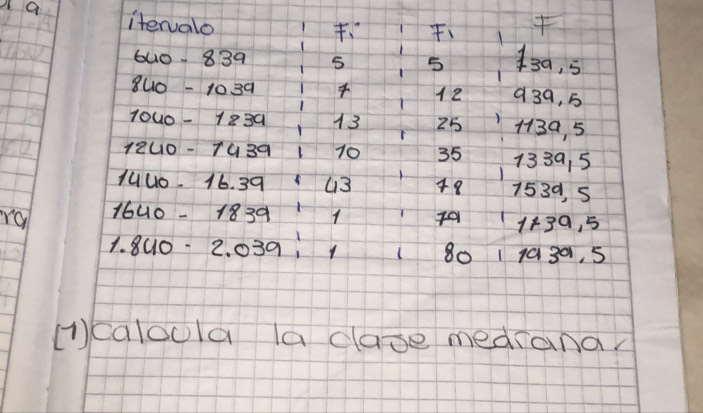 a
itervalo Fi Fi F
640 - 839 5 5 739,5
840 - 1039 7 12 939,5
1040 - 1239 13 25 1139,5
1240 - 1439 10 35 1339,5
1440 - 16.39 43 78 1539,5
1640 - 1839 1 79 1739,5
1.840 - 2.039 1 80 1939,5
(1) calcula la clase mediana